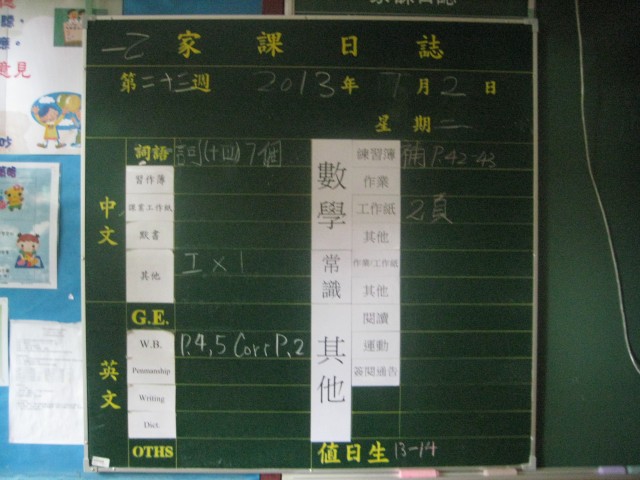 一乙 家課日誌
第二十三週 2013年 7月2日
星期二
中文
詞語 詞(十四)7個
習作簿
課業工作紙
默書
其他 工x1
G.E.
英文
W.B. P.4,5 Corr P.2
Penmanship
Writing
Dict.
OTHS
數學
練習簿 補P.42-43
作業
工作紙 2頁
其他
常識
作業/工作紙
其他
其他
閱讀
運動
簽閱通告
值日生 13-14
意見